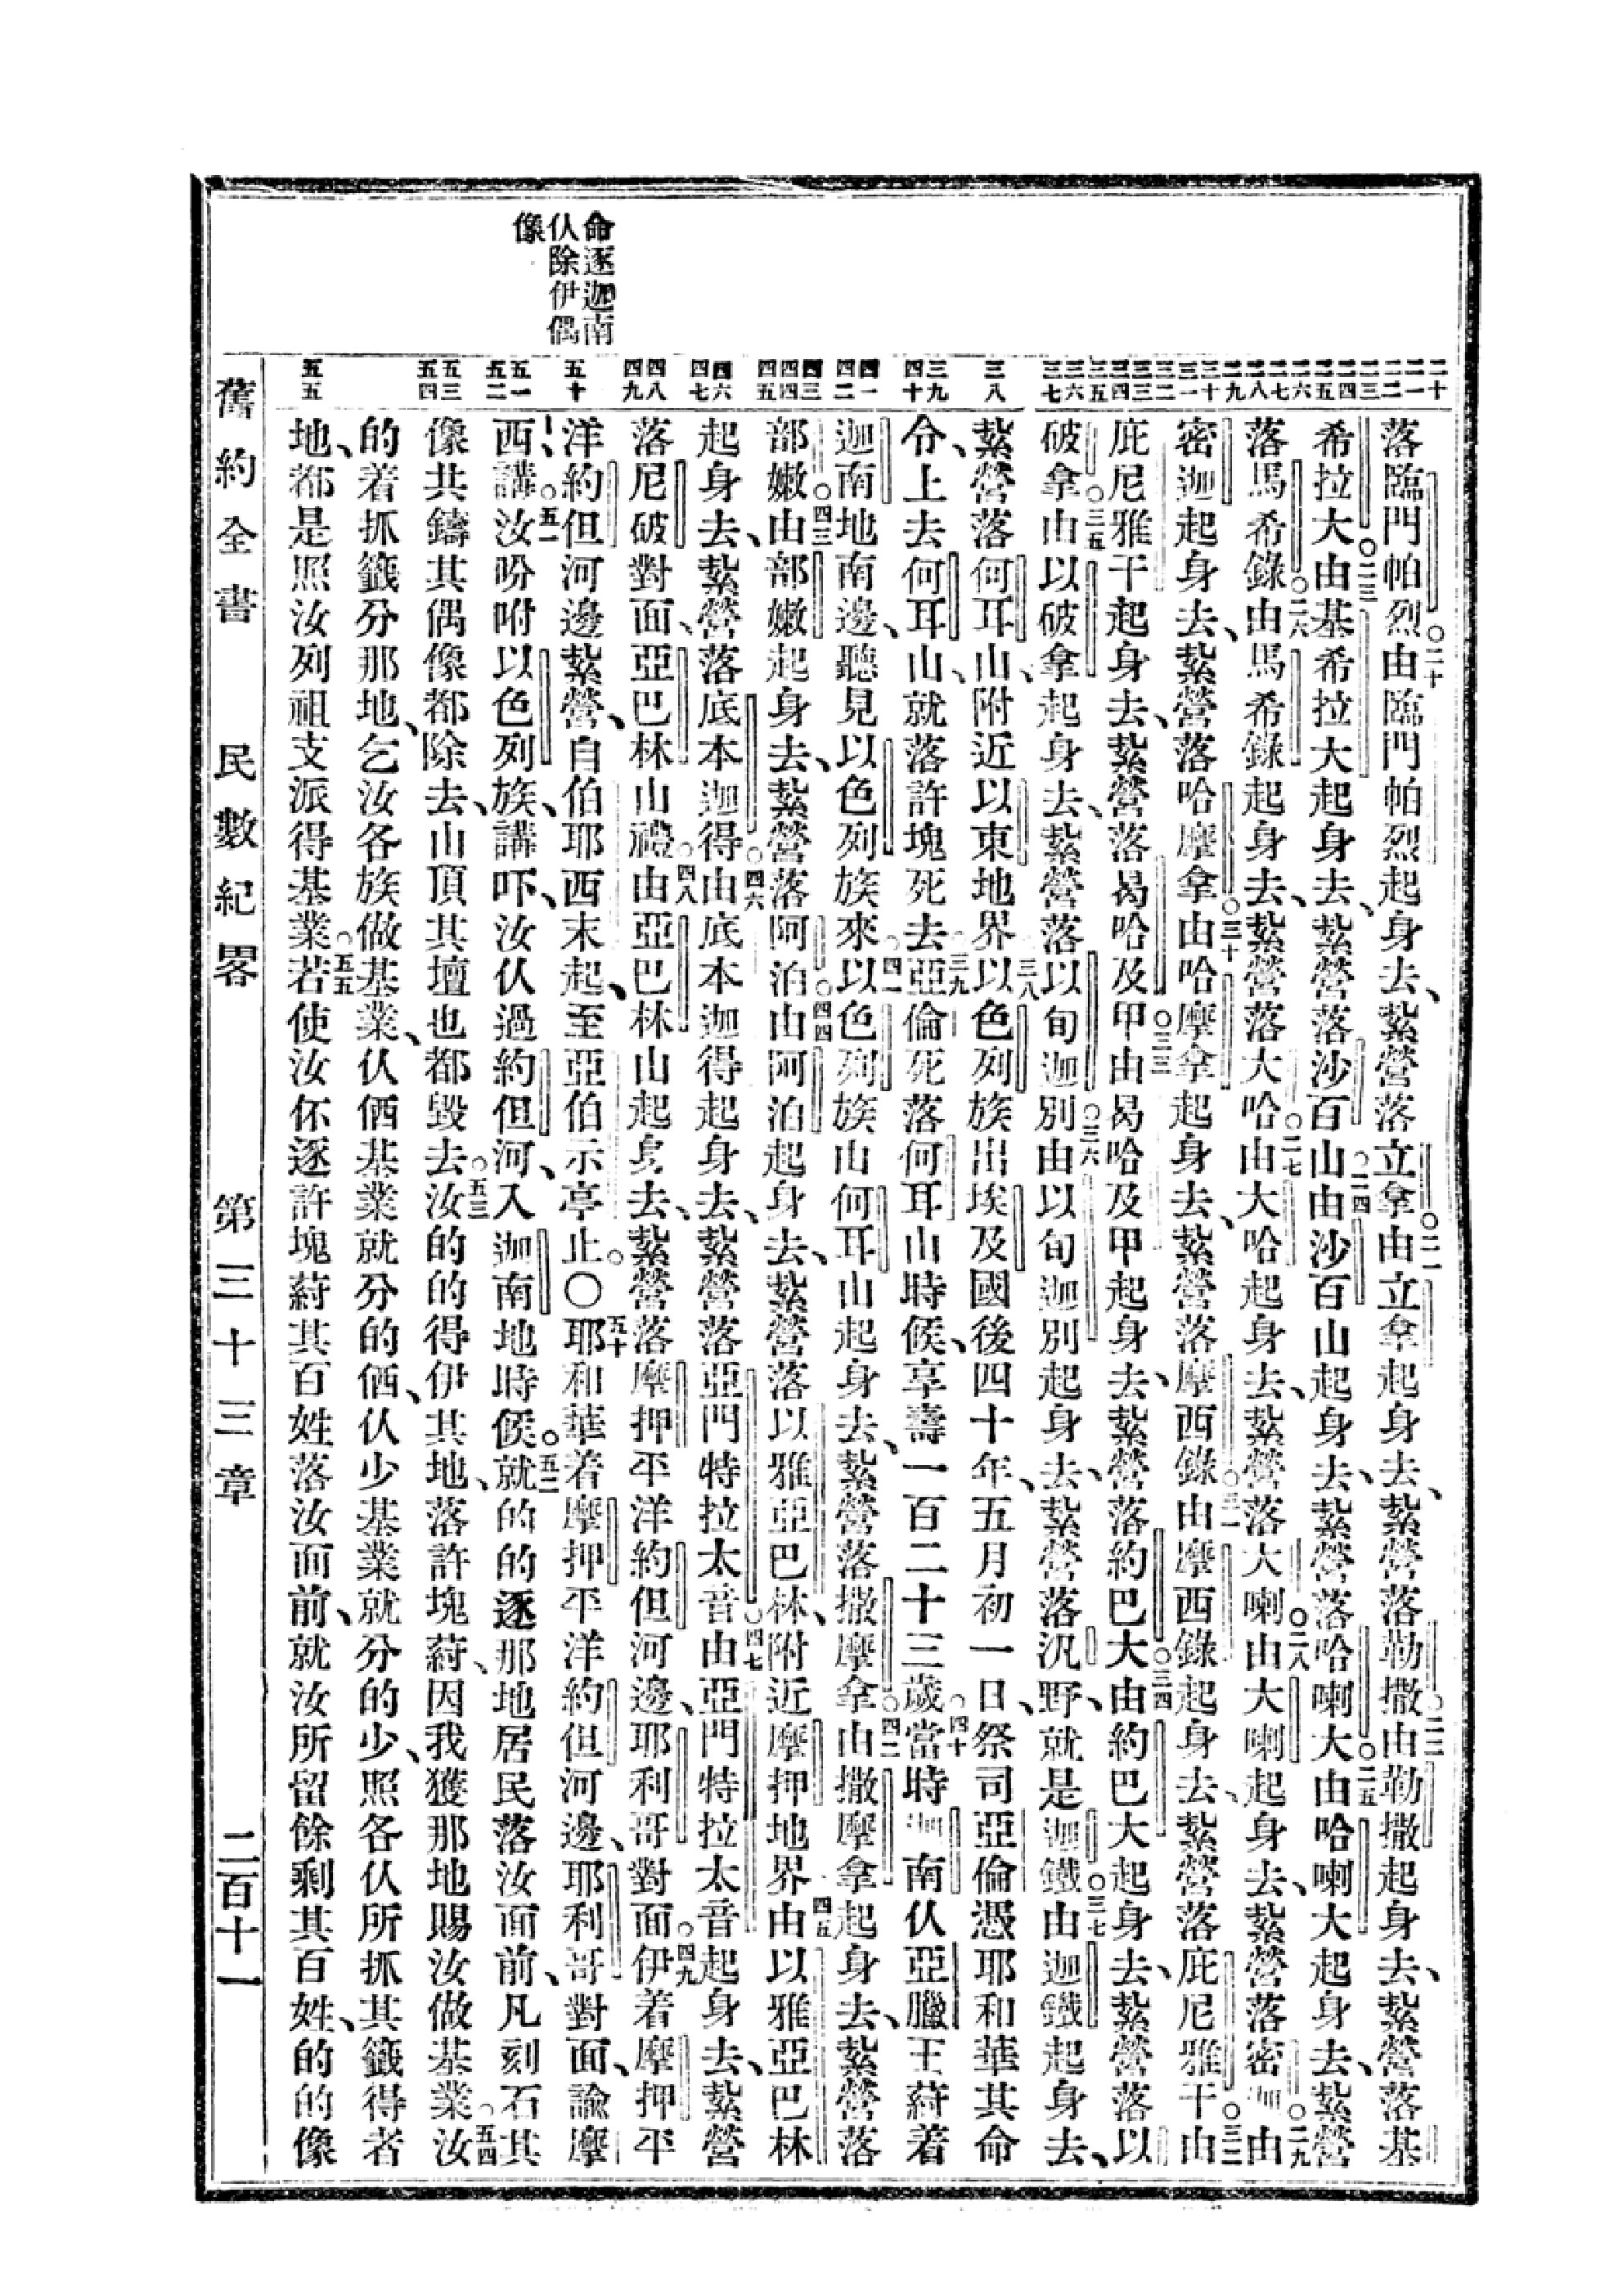 命逐迦南
仈除伊偶
像
二十 二一 二二 二三 二四 二五 二六 二七 二八 二九 三十 三一 三二 三三 三四 三五 三六 三七 三八 三九 四十 四一 四二 四三 四四 四五 四六 四七 四八 四九 五十 五一 五二 五三 五四 五五
落臨門帕烈○二十由臨門帕烈起身去、紮營落立拿○二一由立拿起身去、紮營落勒撒○二二由勒撒起身去、紮營落基
希拉大○二三由基希拉大起身去、紮營落沙百山○二四由沙百山起身去、紮營落哈喇大○二五由哈喇大起身去、紮營
落馬希錄○二六由馬希錄起身去、紮營落大哈○二七由大哈起身去、紮營落大喇○二八由大喇起身去、紮營落密迦○二九由
密迦起身去、紮營落哈摩拿○三十由哈摩拿起身去、紮營落摩西錄○三一由摩西錄起身去、紮營落庇尼雅干○三二由
庇尼雅干起身去、紮營落曷哈及甲○三三由曷哈及甲起身去、紮營落約巴大○三四由約巴大起身去、紮營落以
破拿○三五由以破拿起身去、紮營落以旬迦別○三六由以旬迦別起身去、紮營落汎野、就是迦鐵○三七由迦鐵起身去、
紮營落何耳山、附近以東地界○三八以色列族出埃及國後四十年、五月初一日、祭司亞倫憑耶和華其命
令、上去何耳山、就落許塊死去○三九亞倫死落何耳山時候、享壽一百二十三歲○四十當時迦南仈亞臘王蒔着
迦南地南邊、聽見以色列族來○四一以色列族由何耳山起身去、紮營落撒摩拿○四二由撒摩拿起身去、紮營落
部嫩○四三由部嫩起身去、紮營落阿泊○四四由阿泊起身去、紮營落以雅亞巴林、附近摩押地界○四五由以雅亞巴林
起身去、紮營落底本迦得○四六由底本迦得起身去、紮營落亞門特拉太音○四七由亞門特拉太音起身去、紮營
落尼破對面、亞巴林山禮○四八由亞巴林山起身去、紮營落摩押平洋約但河邊、耶利哥對面○四九伊着摩押平
洋約但河邊紮營、自伯耶西末起、至亞伯示亭止○○五十耶和華着摩押平洋約但河邊、耶利哥對面、諭摩
西、講○五一汝吩咐以色列族、講吓、汝仈過約但河、入迦南地時候○五二就的的逐那地居民落汝面前、凡刻石其
像共鑄其偶像都除去、山頂其壇也都毀去○五三汝的的得伊其地、落許塊蒔、因我獲那地賜汝做基業○五四汝
的着抓籤分那地、乞汝各族做基業、仈俖基業就分的俖、仈少基業就分的少、照各仈所抓其籤得者
地、都是照汝列祖支派得基業○五五若使汝伓逐許塊蒔其百姓落汝面前、就汝所留餘剩其百姓、的的像
舊約全書 民數紀畧 第三十三章 二百十一